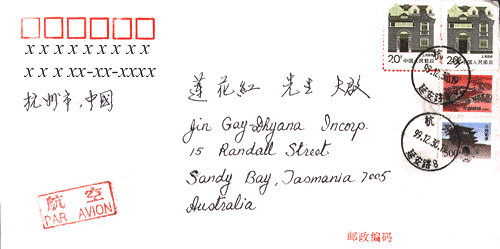 x x x x x x x x x
x x x xx-xx-xxxx
杭州市,中國
蓮花紅 先生 大啟
Jin Gay-Dhyana Incorp.
15 Randall Street
Sandy Bay, Tasmania 7005
Australia
航空
PAR AVION
邮政编码
20分
中国人民邮政
20分
中国人民邮政
杭
99.12.30.19
延安路
杭
99.12.30.19
延安路8
300